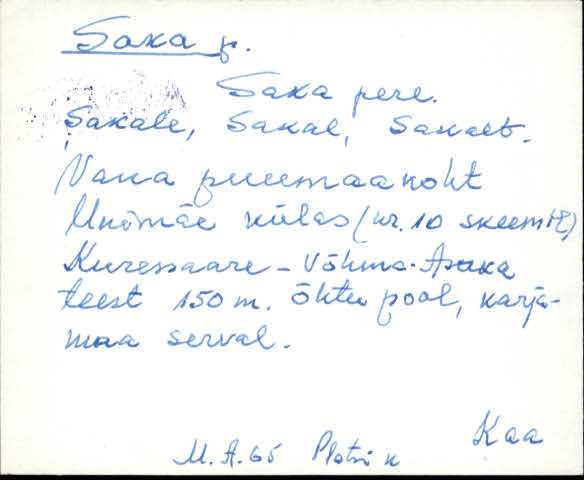 Saka p.
Saka pere.
Sakale, Sakal, Sakalt.
Vana puumaakoht
Unimäe külas (nr. 10 skeemil)
Kuressaare – Võhma-Asuka
teest 150 m. õhtu pool, karja-
maa serval.
Kaa
M. A. 65